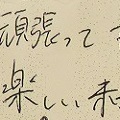 頑張って
楽しい